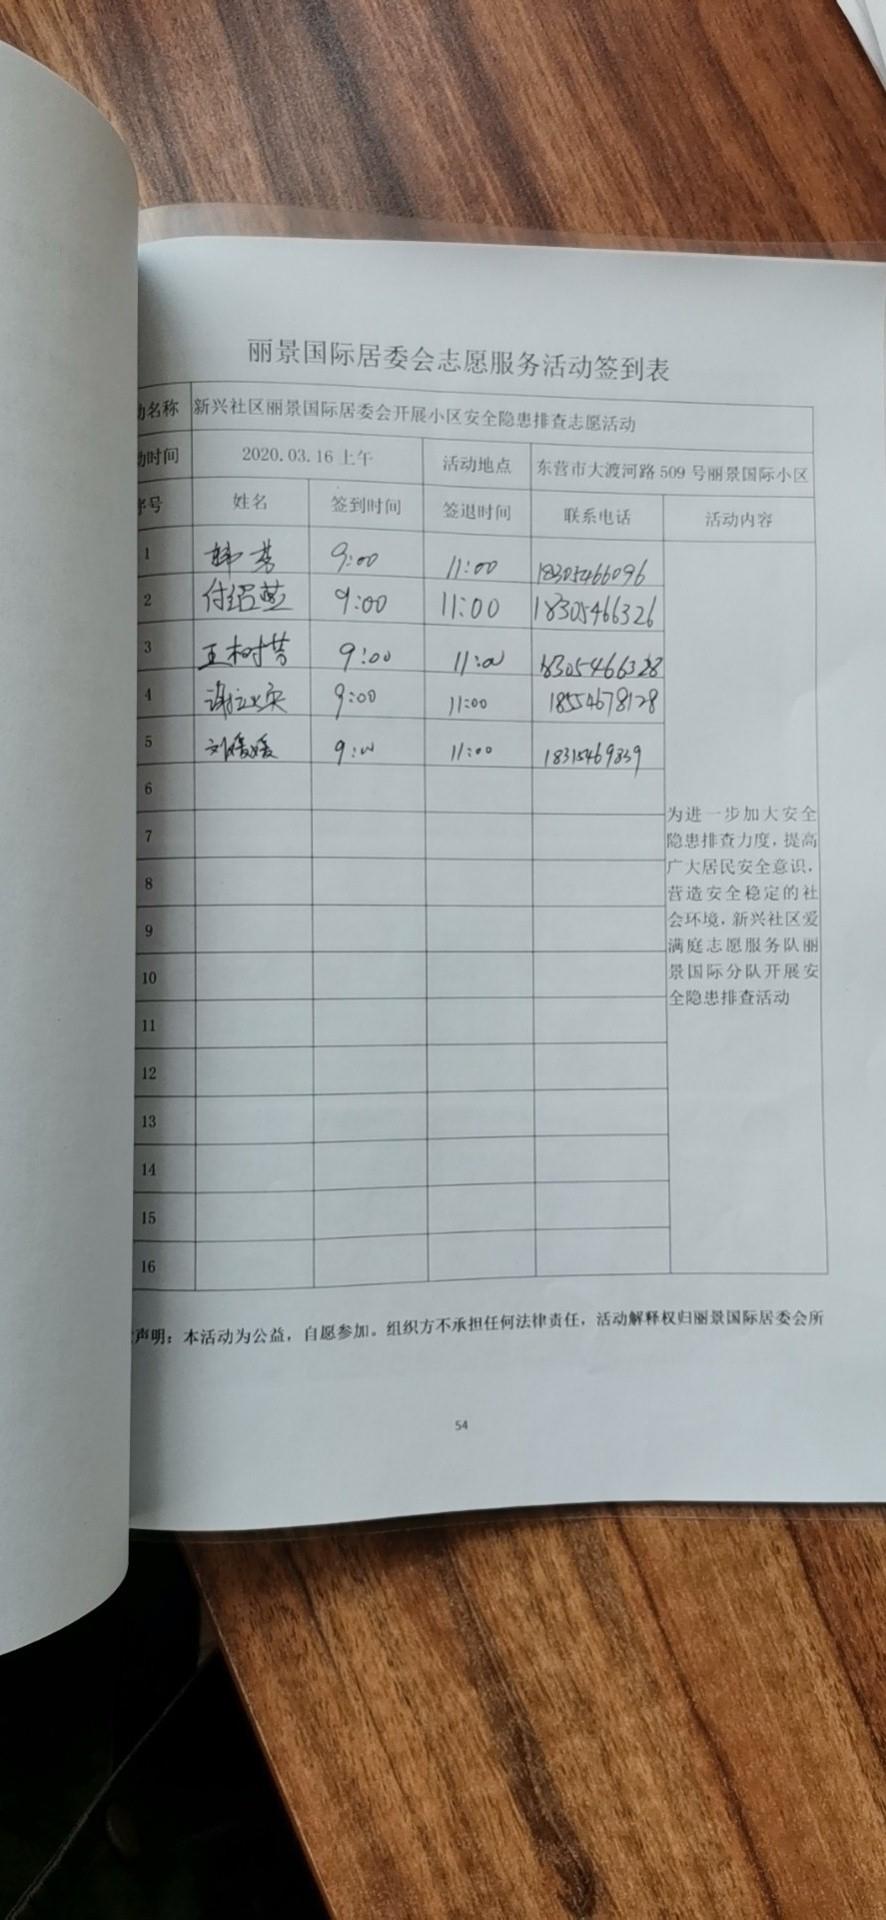 丽景国际居委会志愿服务活动签到表
动名称 新兴社区丽景国际居委会开展小区安全隐患排查志愿活动
动时间 2020.03.16上午 活动地点 东营市大渡河路509号丽景国际小区
序号 姓名 签到时间 签退时间 联系电话 活动内容
1 韩芳 9:00 11:00 18305466096
2 付绍燕 9:00 11:00 18305466326
3 王树芳 9:00 11:00 18305466328
4 9:00 11:00 18554678128
5 刘媛媛 9:00 11:00 18315469839
6
7
8
9
10
11
12
13
14
15
16
为进一步加大安全
隐患排查力度，提高
广大居民安全意识，
营造安全稳定的社
会环境，新兴社区爱
满庭志愿服务队丽
景国际分队开展安
全隐患排查活动
声明：本活动为公益，自愿参加。组织方不承担任何法律责任，活动解释权归丽景国际居委会所
54